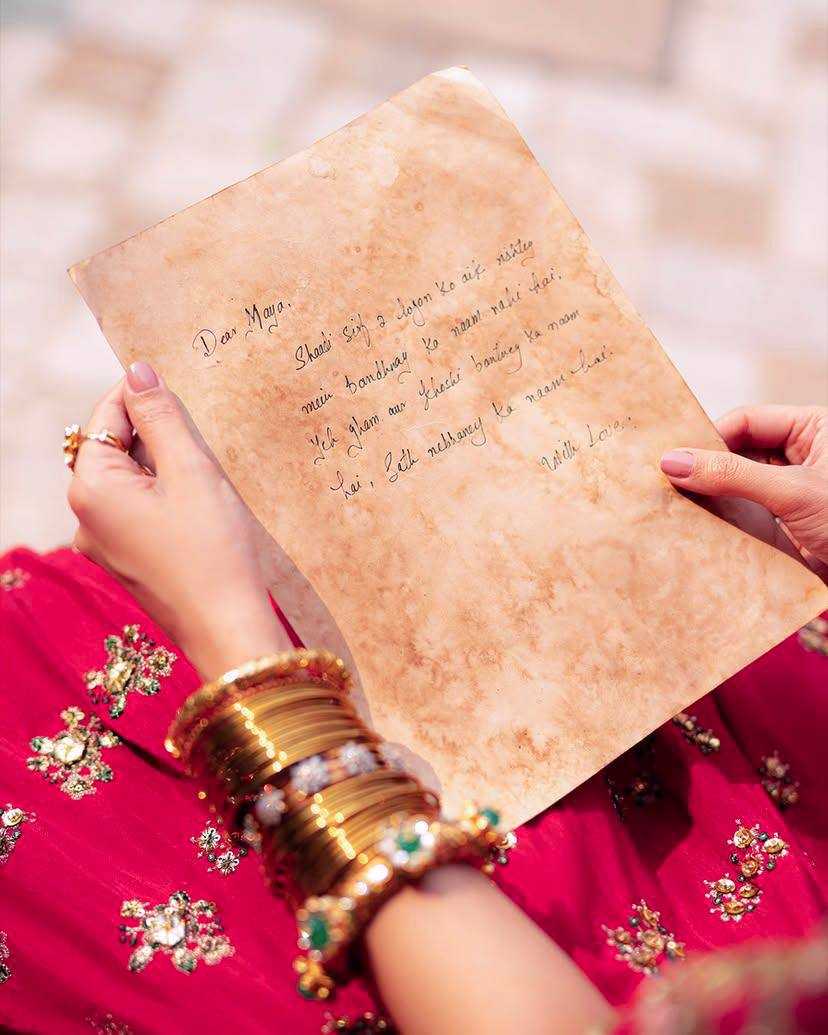 Dear Maya,
Shaadi sirf 2 logon ko aik rishtey
mein bandhnay ka naam nahi hai.
Yeh gham aur khushi bantney ka naam
hai, Sath nebhaney ka naam hai.
With Love.